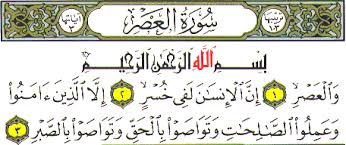 ترتيبها ١٣ سُورَةُ العَصْرِ آياتها ٣
بِسْمِ اللَّهِ الرَّحْمَٰنِ الرَّحِيمِ
وَالْعَصْرِ ١ إِنَّ الْإِنسَانَ لَفِي خُسْرٍ ٢ إِلَّا الَّذِينَ ءَامَنُوا
وَعَمِلُوا الصَّالِحَاتِ وَتَوَاصَوْا بِالْحَقِّ وَتَوَاصَوْا بِالصَّبْرِ ٣